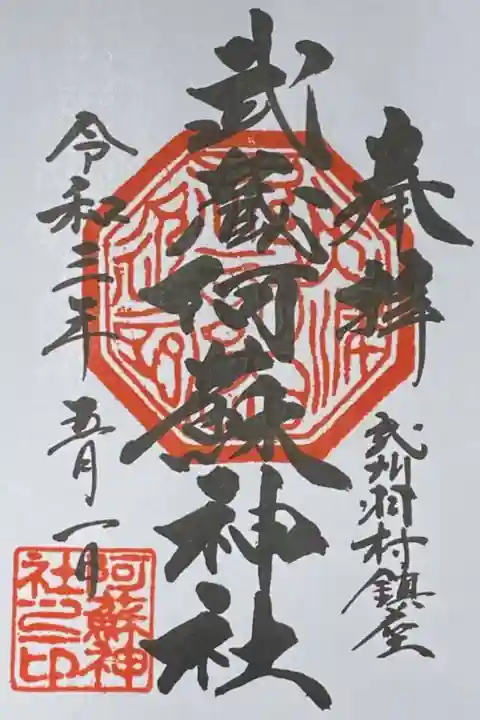 奉拝
武州羽村鎮座
武蔵阿蘇神社
令和三年五月一日
阿蘇神
社之印